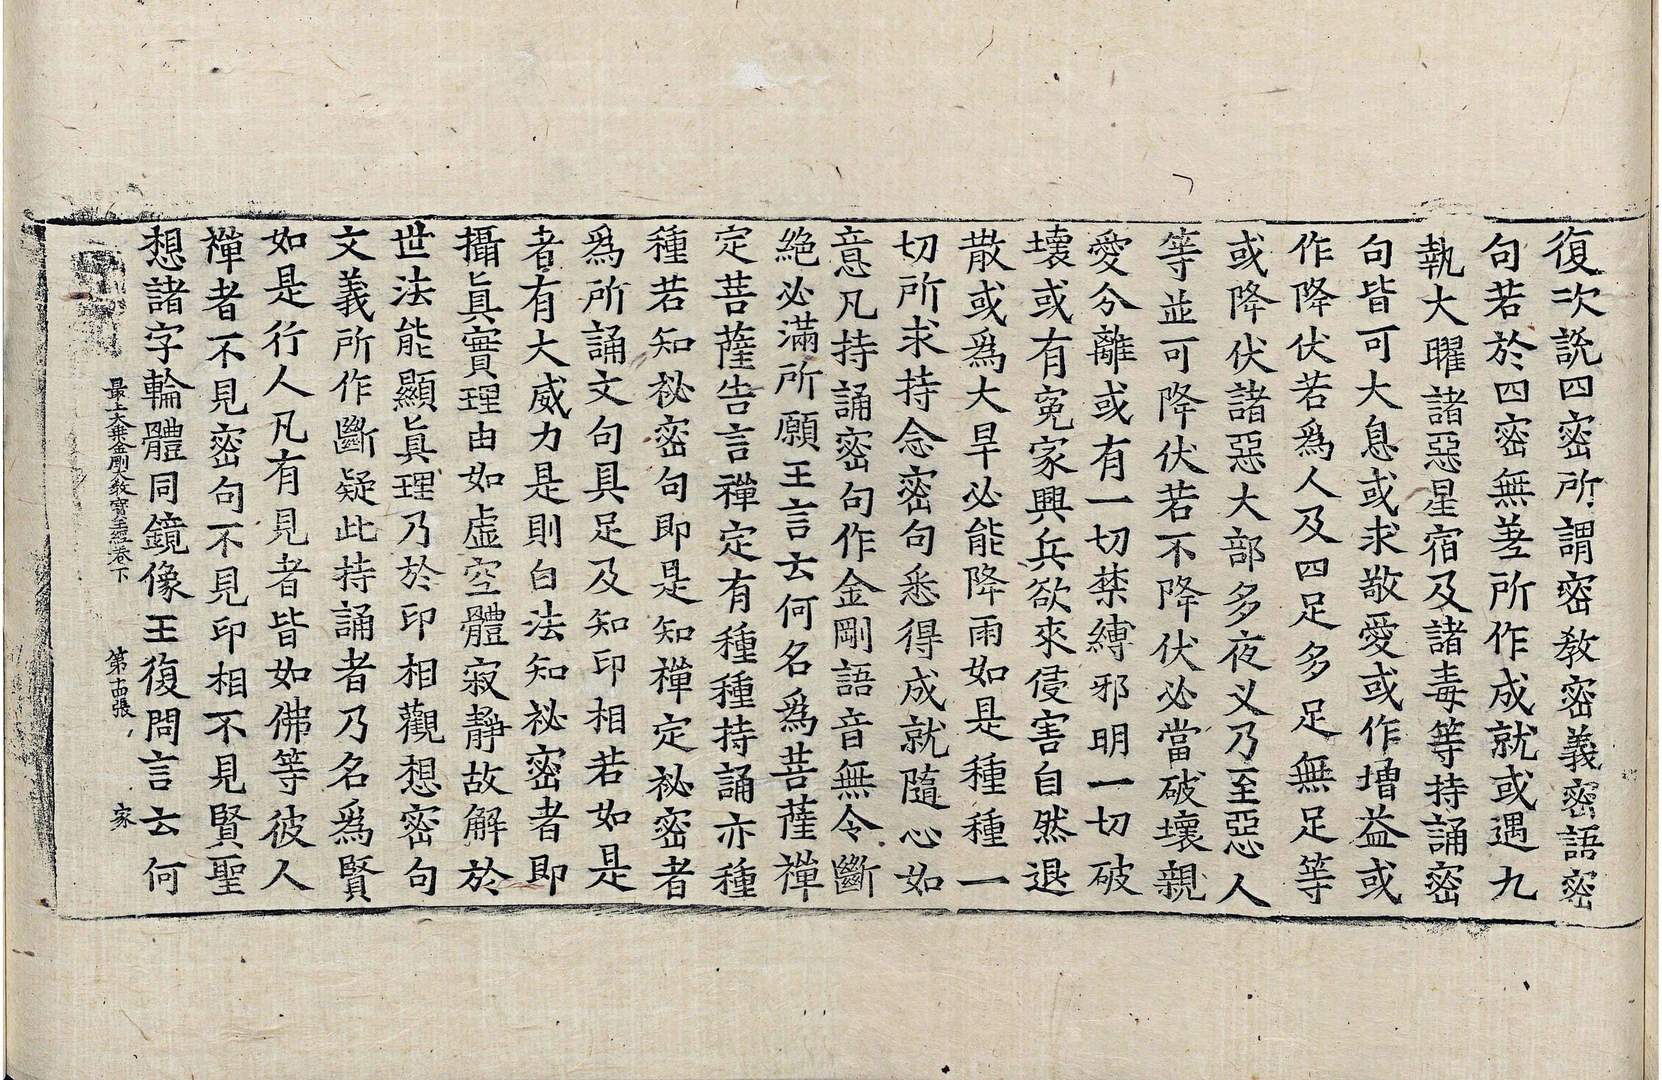 復次説四密所謂密教密義密語密
句若於四密無差所作成就或遇九
執大曜諸惡星宿及諸毒等持誦密
句皆可大息或求敬愛或作增益或
作降伏若爲人及四足多足無足等
或降伏諸惡大部多夜叉乃至惡人
等並可降伏若不降伏必當破壞親
愛分離或有一切禁縛邪明一切破
壞或有冤家興兵欲來侵害自然退
散或爲大旱必能降雨如是種種一
切所求持念密句悉得成就隨心如
意凡持誦密句作金剛語音無令斷
絶必滿所願王言云何名爲菩薩禪
定菩薩告言禪定有種種持誦亦種
種若知祕密句即是知禪定祕密者
爲所誦文句具足及知印相若如是
者有大威力是則自法知祕密者即
攝眞實理由如虛空體寂靜故解於
世法能顯眞理乃於印相觀想密句
文義所作斷疑此持誦者乃名爲賢
如是行人凡有見者皆如佛等彼人
禪者不見密句不見印相不見賢聖
想諸字輪體同鏡像王復問言云何
最上大乘金剛大教寶王經卷下 第十四張 家